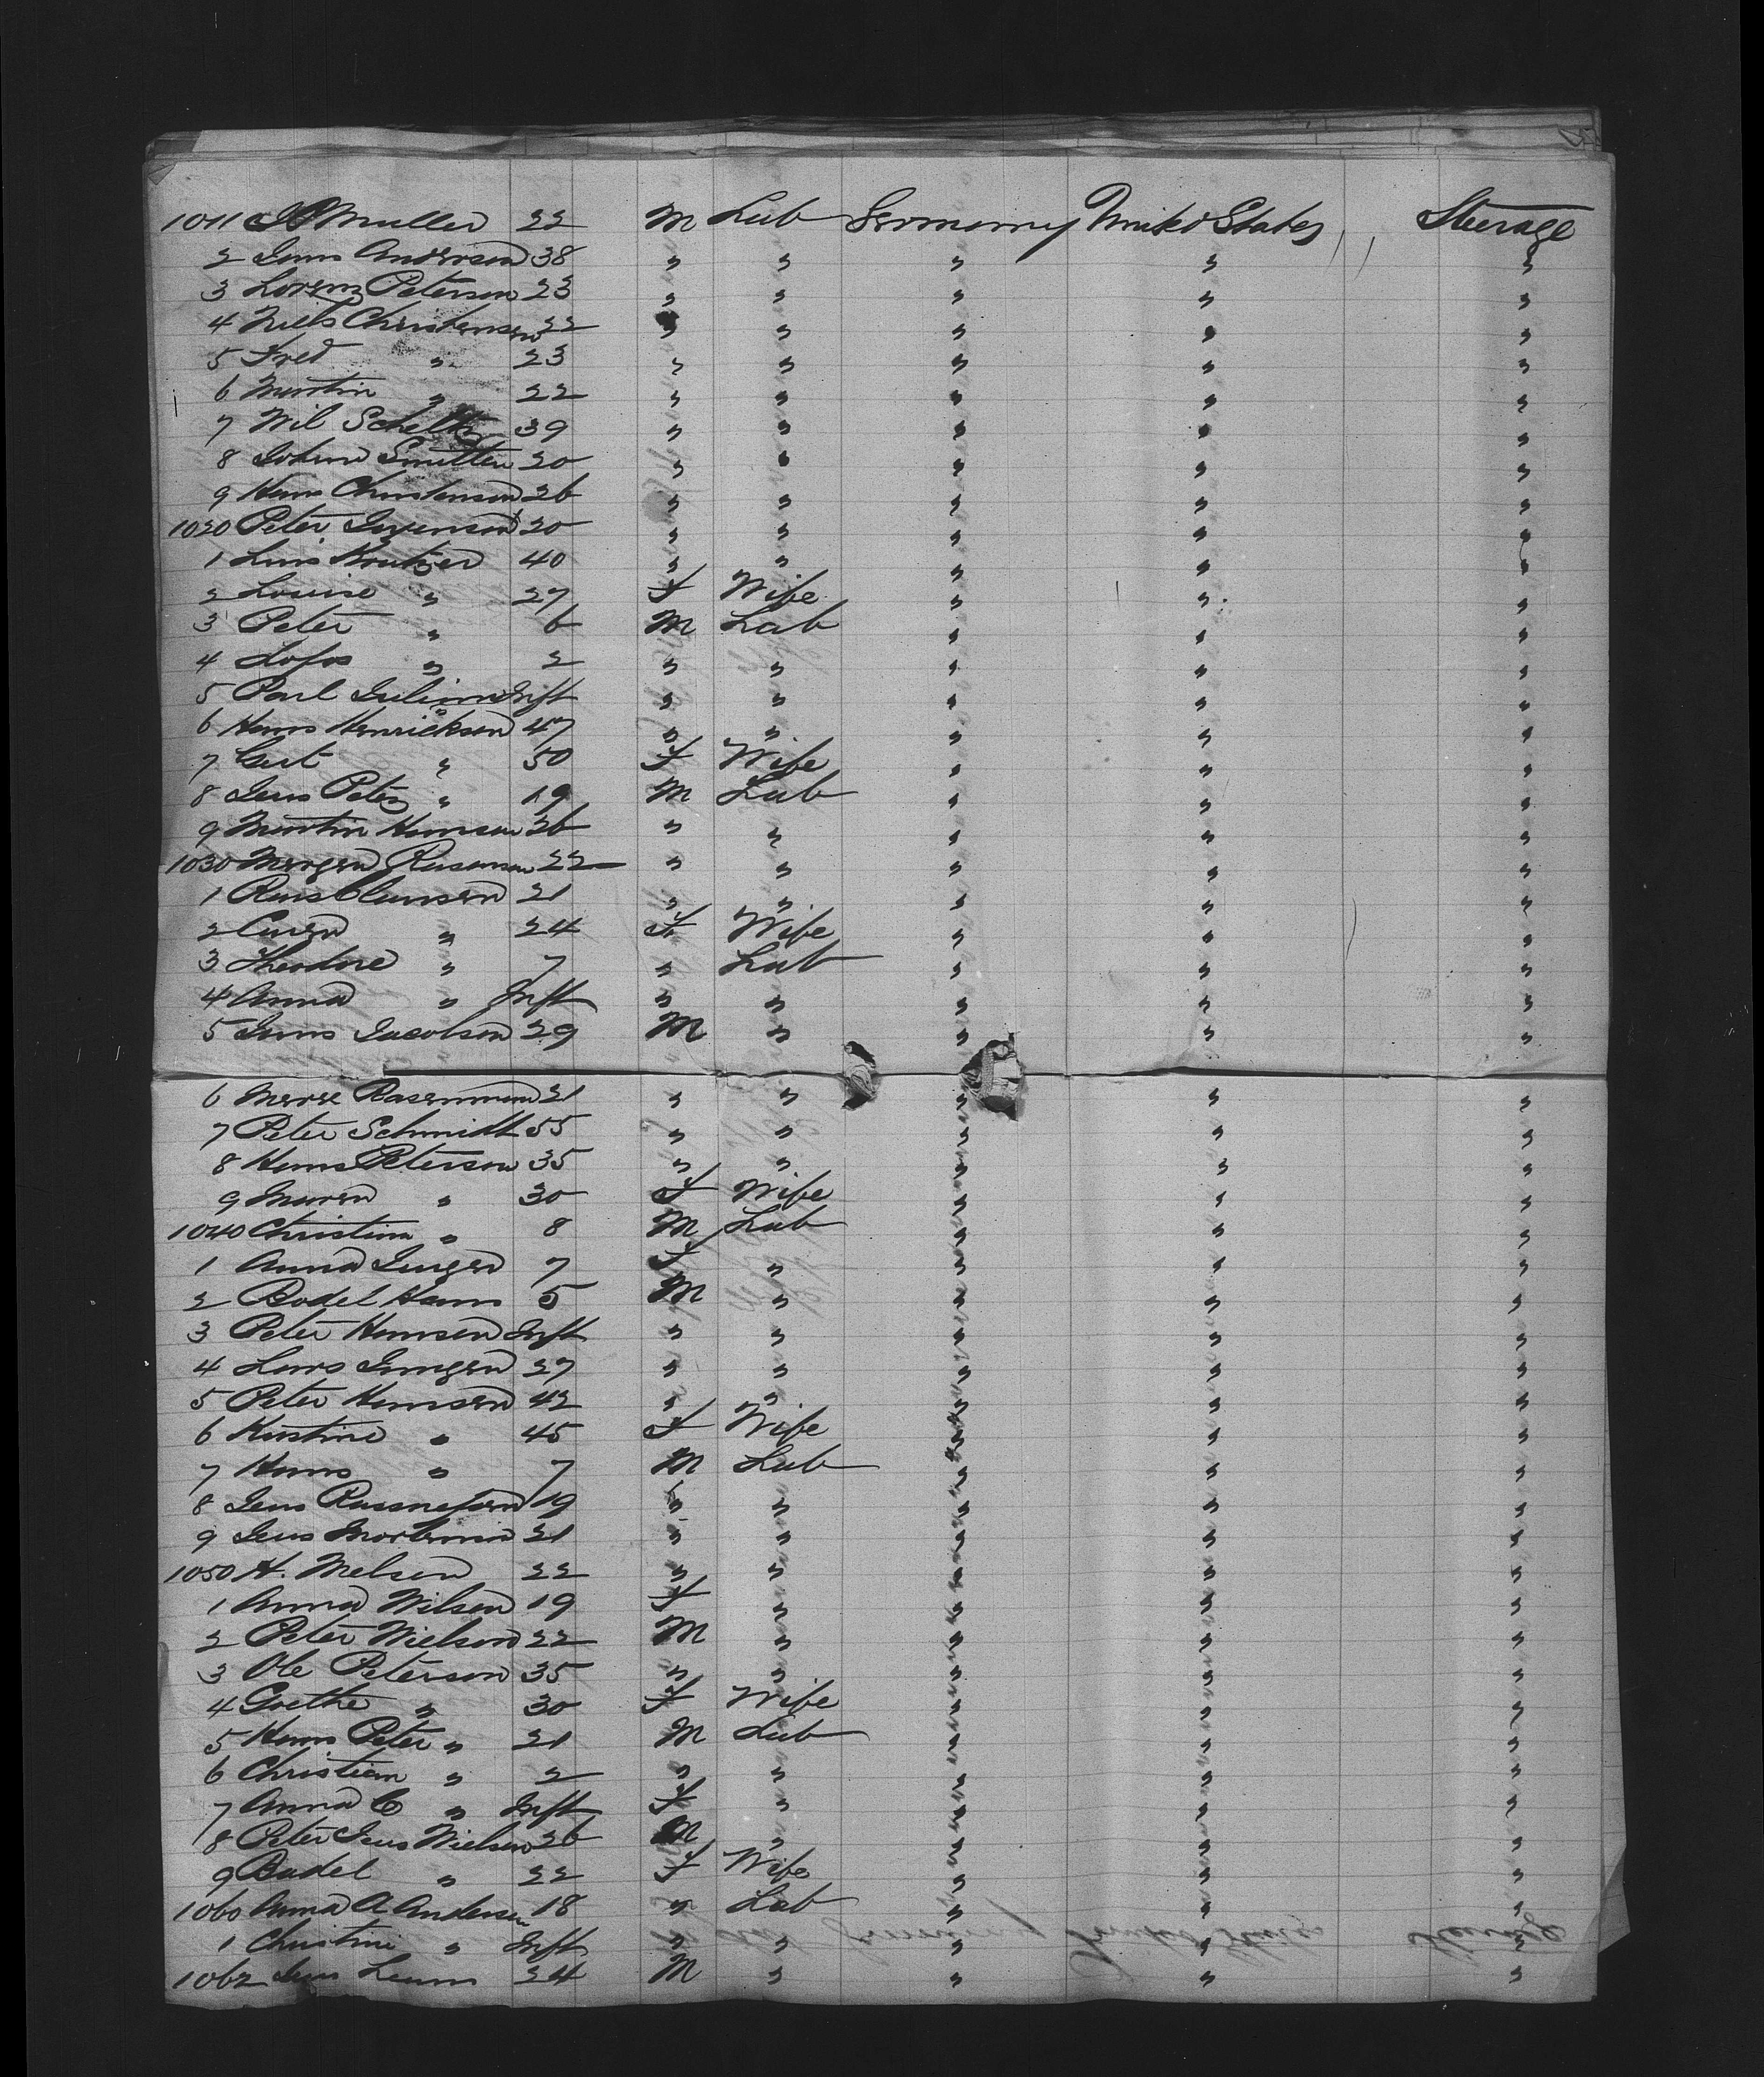 1011 J P Muller 22 M Lab Germany United States Steerage
2 Jens Anderson 38 " " " " "
3 Lorenz Peterson 23 " " " " "
4 Niels Christensen 22 " " " " "
5 Fred " 23 " " " " "
6 Martin " 22 " " " " "
7 Wil 39 " " " " "
8 Johan 20 " " " " "
9 Hans Christenson 26 " " " " "
1020 Peter 20 " " " " "
1 40 " " " " "
2 Louise " 27 F Wife " " "
3 Peter " 6 M Lab " " "
4 " 2 " " " " "
5 Paul " Inft " " " " "
6 Hans Henrickson 47 " " " " "
7 " 50 F Wife " " "
8 Jens Peter " 19 M Lab " " "
9 Martin Hansen 26 " " " " "
1030 22 " " " " "
1 Clausen 21 " " " " "
2 " 24 F Wife " " "
3 Theodore " 7 " Lab " " "
4 Anna " Inft " " " " "
5 Jens Jacobson 29 M " " " "
6 21 " " " " "
7 Peter Schmidt 55 " " " " "
8 Hans Peterson 35 " " " " "
9 Maren " 30 F Wife " " "
1040 Christian " 8 M Lab " " "
1 Anna 7 F " " " "
2 Bodel Hans 5 M " " " "
3 Peter Hansen Inft " " " " "
4 27 " " " " "
5 Peter Hansen 42 " " " " "
6 Kirstine " 45 F Wife " " "
7 Hans " 7 M Lab " " "
8 Jens 19 " " " " "
9 Jens 21 " " " " "
1050 H. Nelson 22 " " " " "
1 Anna Nilson 19 F " " " "
2 Peter Nielson 22 M " " " "
3 Ole Peterson 35 " " " " "
4 Goethe " 30 F Wife " " "
5 Hans Peter " 21 M Lab " " "
6 Christian " 2 " " " " "
7 Anna C " Inft F " " " "
8 Peter Jens Nielson 26 M " " " "
9 Bodel " 22 F Wife " " "
1060 Anna A Anderson 18 " Lab " " "
1 Christine " Inft " " " " "
1062 Jens 24 M " " " "